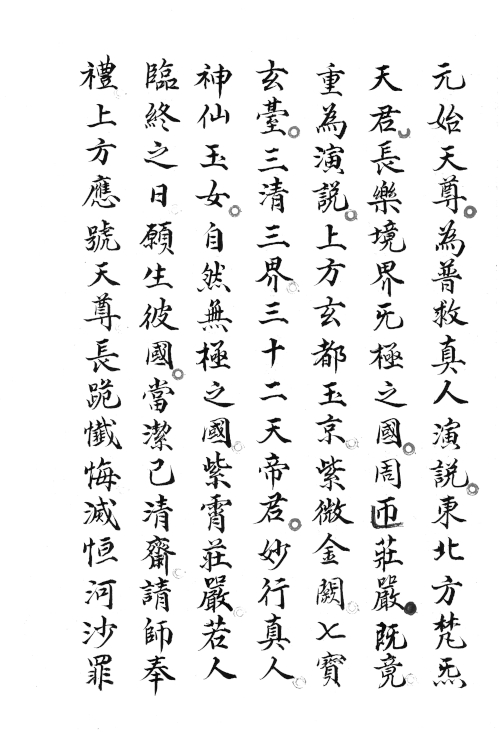 元始天尊為普救真人演説東北方梵炁
天君長樂境界旡極之國周匝莊嚴既竟
重為演説上方玄都玉京紫微金闕七寳
玄臺三清三界三十二天帝君妙行真人
神仙玉女自然無極之國紫霄莊嚴若人
臨終之日願生彼國當潔己清齋請師奉
禮上方應號天尊長跪懺悔滅恒河沙罪